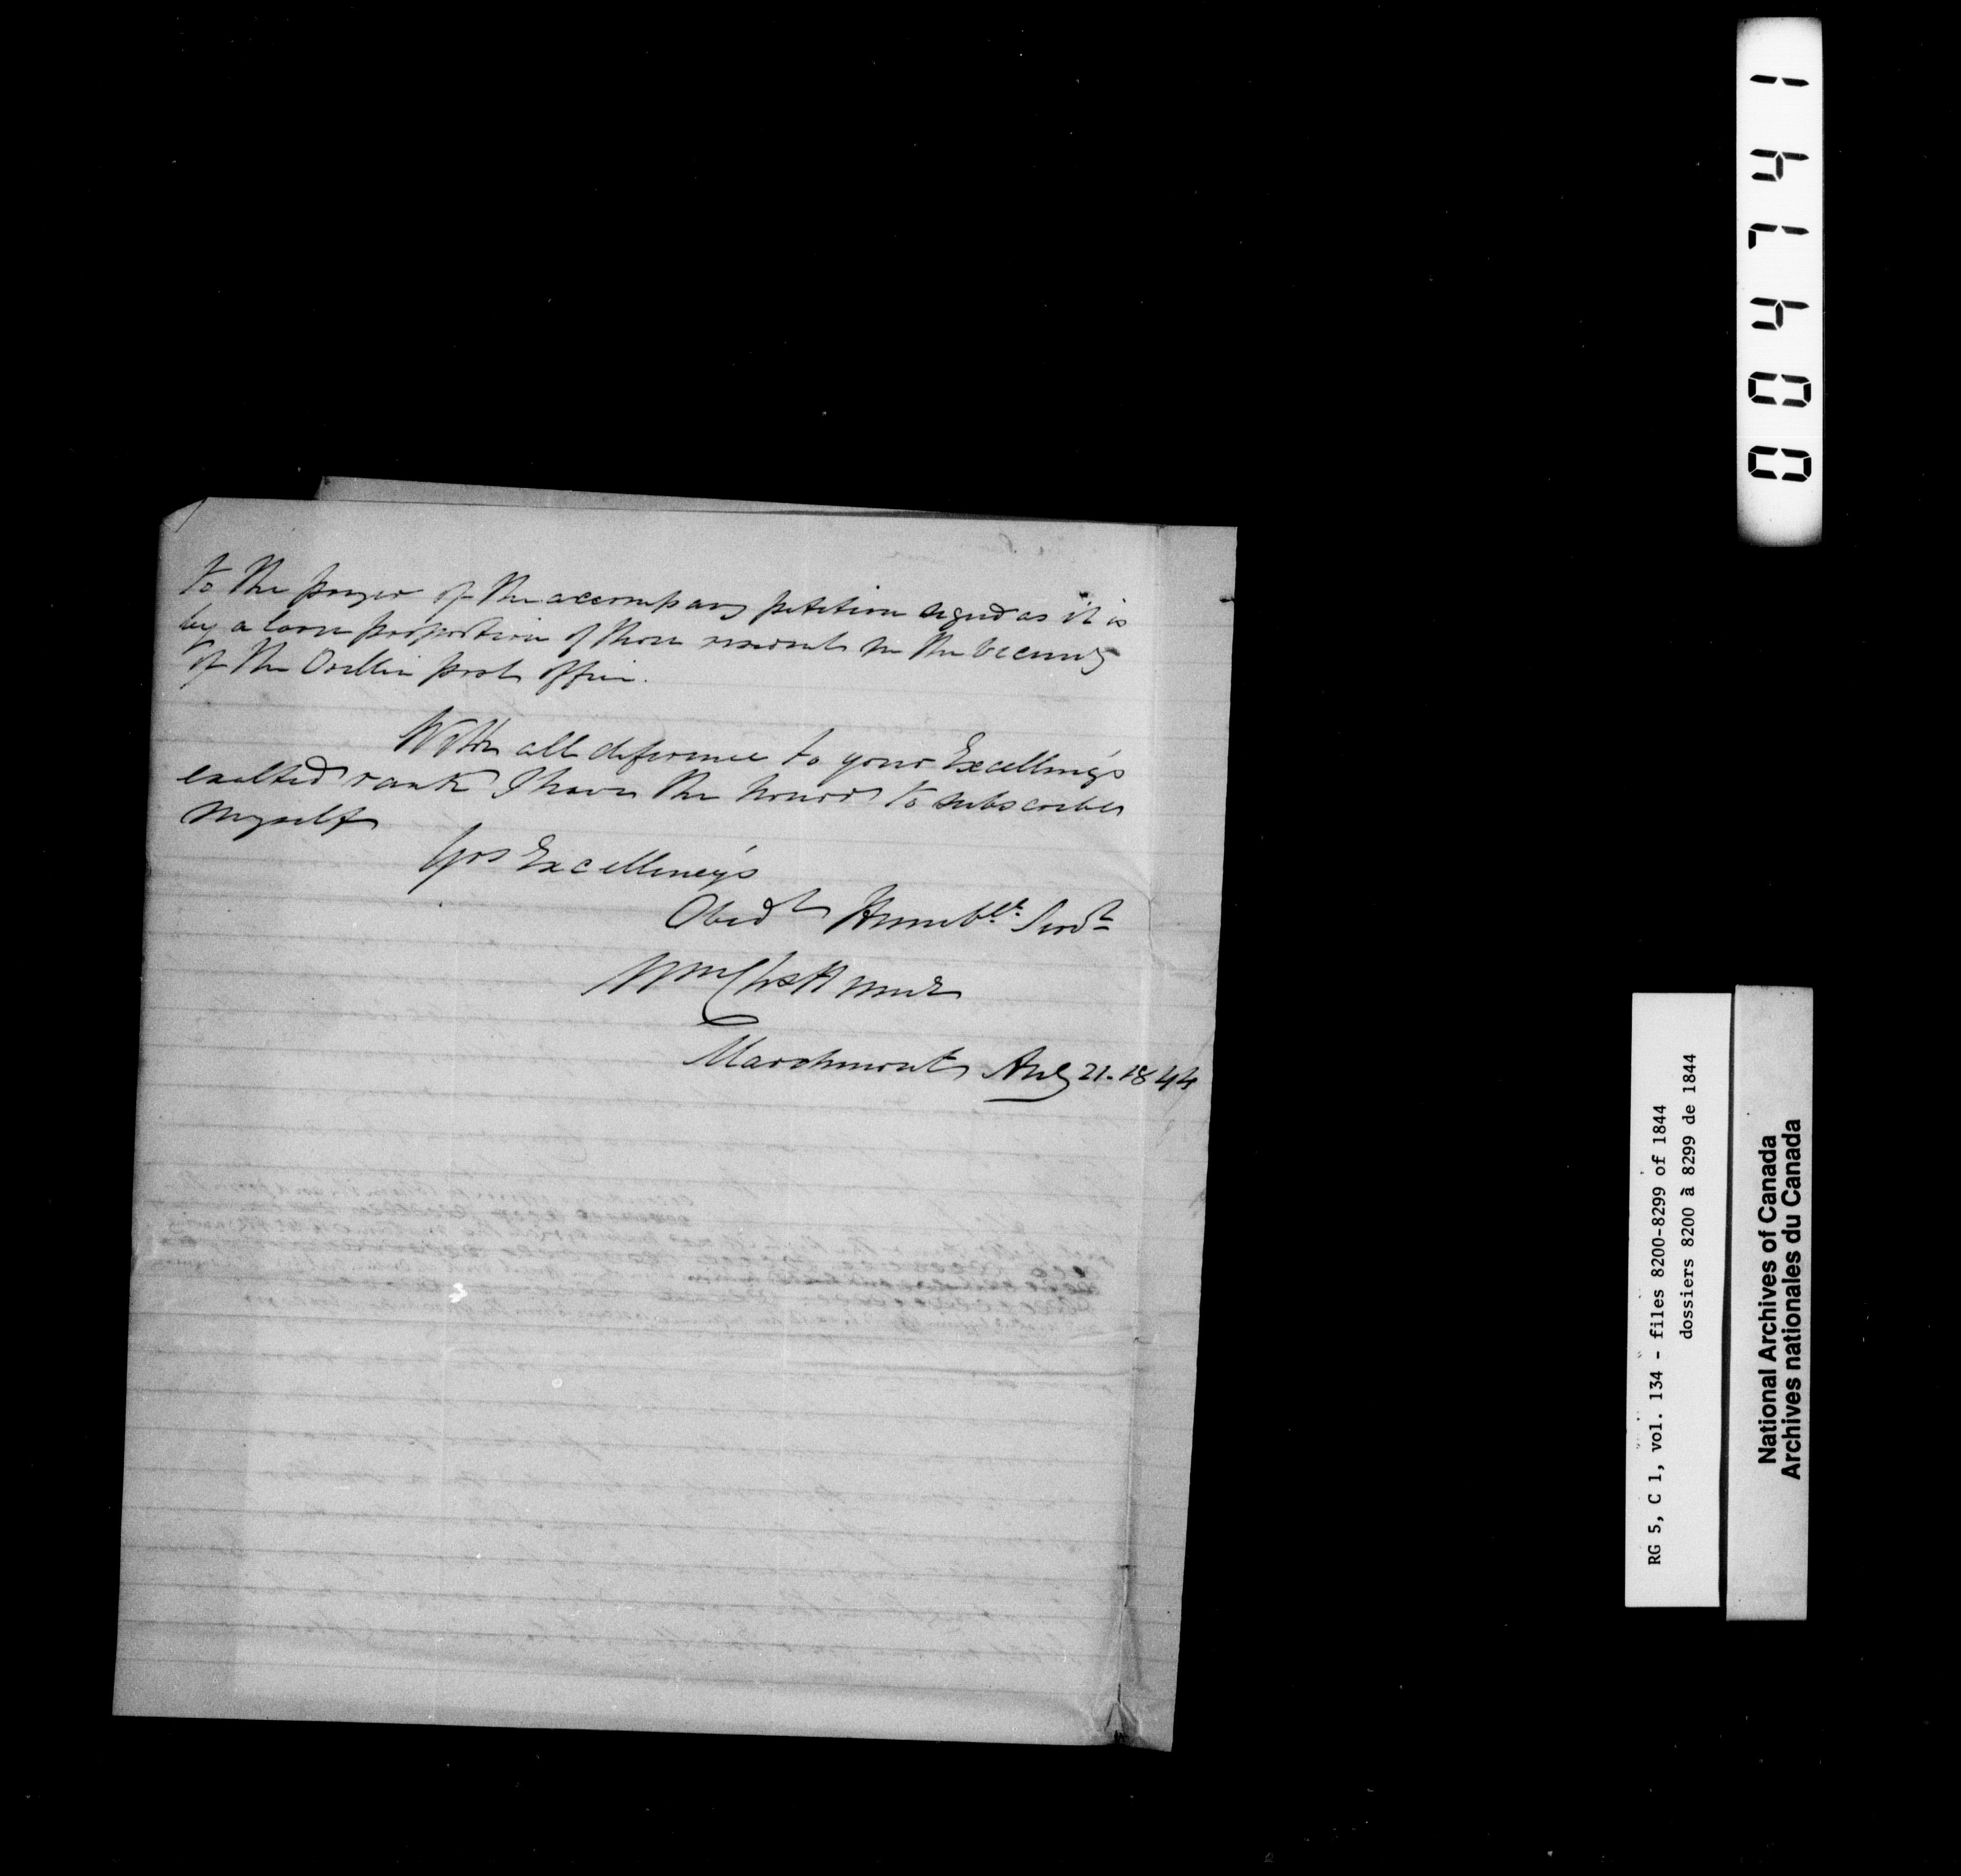 to the prayer of the accompany petition signd as it is
by a large proportion of those resident in the vicinity
of the Orillia post office.
With all deference to your Excellency's
exalted rank I have the honor to subscribe
myself
Yrs Excellency's
Obedt Humble Servt
Wm
Marchmont Aug 21. 1844
004741
RG 5, C 1, vol. 134 - files 8200-8299 of 1844
dossiers 8200 à 8299 de 1844
National Archives of Canada
Archives nationales du Canada